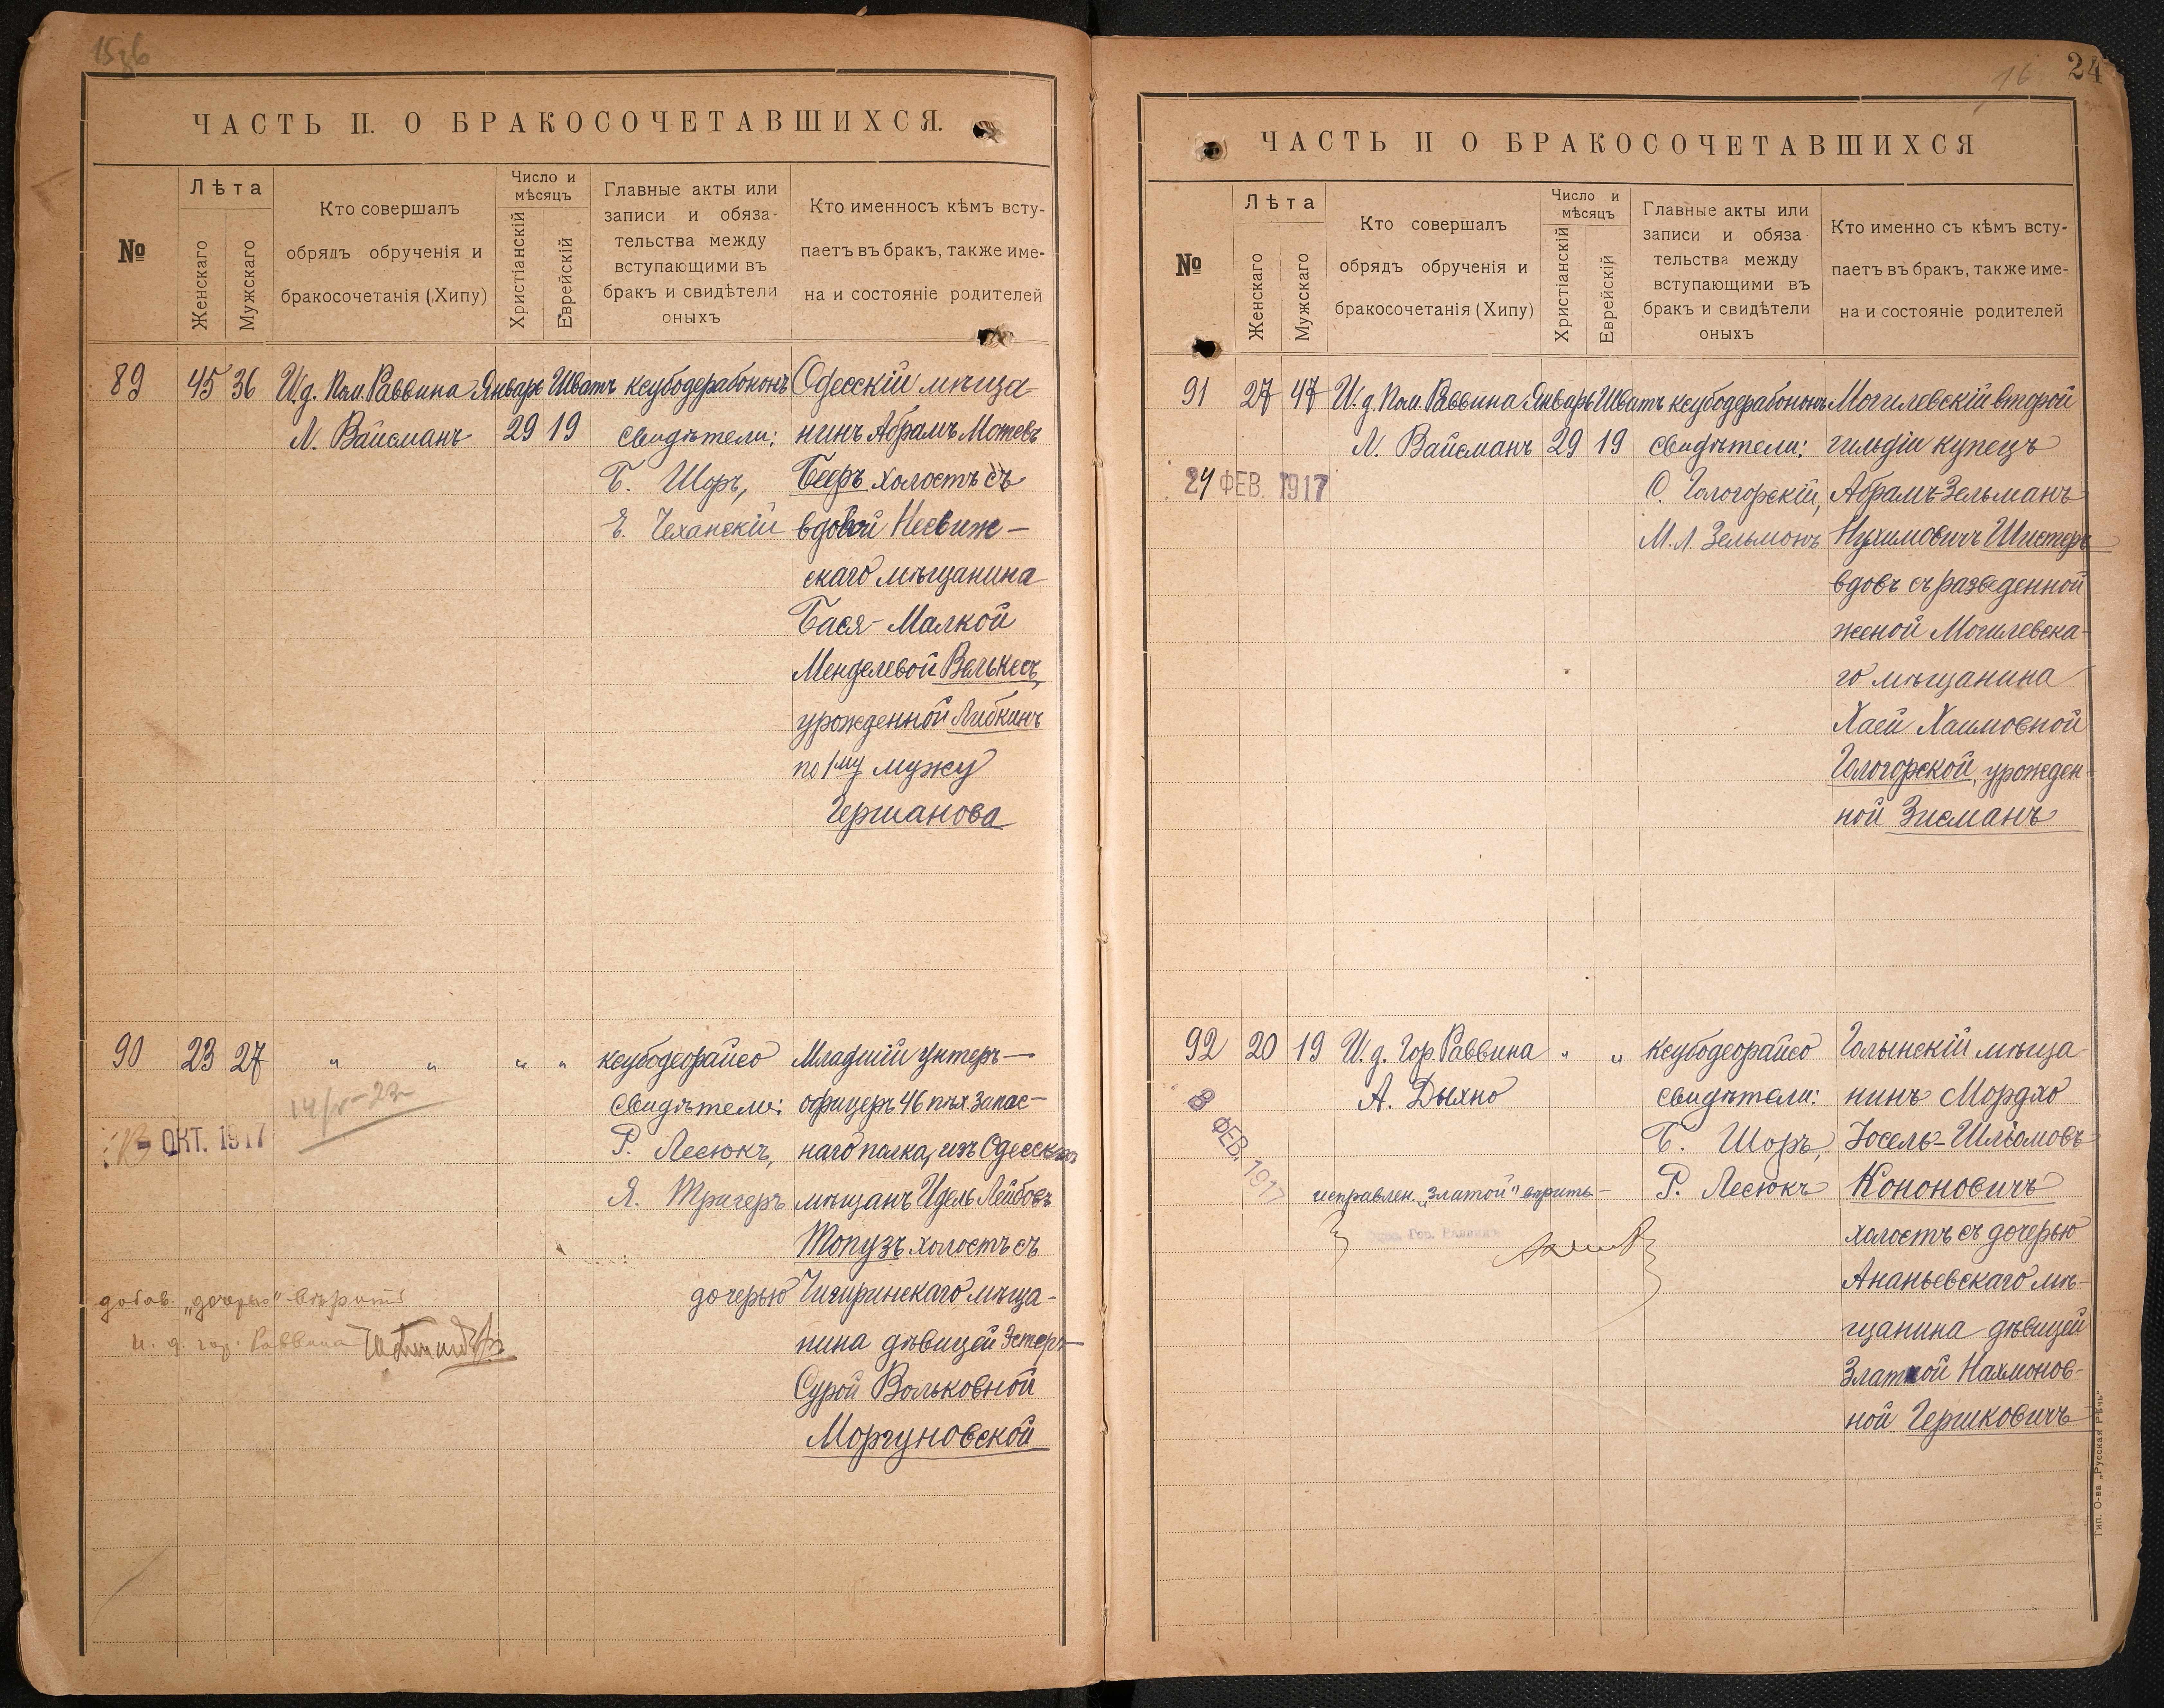 ЧАСТЬ II. О БРАКОСОЧЕТАВШИХСЯ.
№
Лѣта
Женскаго
Мужскаго
Кто совершалъ
обрядъ обрученія и
бракосочетанія (Хипу)
Число и
мѣсяцъ
Христіанскій
Еврейскій
Главные акты или
записи и обяза-
тельства между
вступающими въ
бракъ и свидѣтели
оныхъ
Кто именно съ кѣмъ всту-
паетъ въ бракъ, также име-
на и состояніе родителей
89
45
36
И.д. Пом. Раввина
Л. Вайсманъ
Январь
29
Шватъ
19
ксубодерабононъ
свидѣтели:
Б. Шоръ,
Е. Чеханскій
Одесскій мѣща-
нинъ Абрамъ Мотевъ
Бееръ холостъ съ
вдовой Несвиж-
скаго мѣщанина
Бася-Малкой
Менделевой Велькесъ,
урожденной Либкинъ
по 1му мужу
Гершанова
90
23
27
" "
"
"
ксубодеорайсо
свидѣтели:
Р. Лесюкъ,
Я. Трагеръ
Младшій унтеръ-
офицеръ 46 пѣх. Запас-
наго полка, изъ Одесских
мѣщанъ Идель Лейбовъ
Топузъ холостъ съ
дочерью Чигиринскаго мѣща-
нина дѣвицей Эстеръ-
Сурой Вольковной
Моргуновской
ОКТ. 1917
добав. „дочерью" вѣрить
И. д. гор. Раввина
24
ЧАСТЬ II О БРАКОСОЧЕТАВШИХСЯ
№
Лѣта
Женскаго
Мужскаго
Кто совершалъ
обрядъ обрученія и
бракосочетанія (Хипу)
Число и
мѣсяцъ
Христіанскій
Еврейскій
Главные акты или
записи и обяза
тельства между
вступающими въ
бракъ и свидѣтели
оныхъ
Кто именно съ кѣмъ всту-
паетъ въ бракъ, также име-
на и состояніе родителей
91
27
47
И. д. Пом. Раввина
Л. Вайсманъ
Январь
29
Шватъ
19
ксубодерабононъ
свидѣтели:
О. Гологорскій,
М.Л. Зельмонъ
Могилевскій второй
гильдіи купецъ
Абрамъ-Зельманъ
Нухимовичъ Шистеръ
вдовъ съ разведенной
женой Могилевска-
го мѣщанина
Хаей Хаимовной
Гологорской, урожден-
ной Зисманъ
24 ФЕВ. 1917
92
20
19
И. д. Гор. Раввина
А. Дыхно
"
"
ксубодеорайсо
свидѣтели:
Б. Шоръ,
Р. Лесюкъ
Голынскій мѣща
нинъ Мордхо
Іосель-Шліомовъ
Кононовичъ
холостъ съ дочерью
Ананьевскаго мѣ-
щанина дѣвицей
Златой Нахмонов-
ной Гершковичъ
8 ФЕВ. 1917
исправлен. „Златой" вѣрить
Гип. О-ва „Русская Рѣчь"